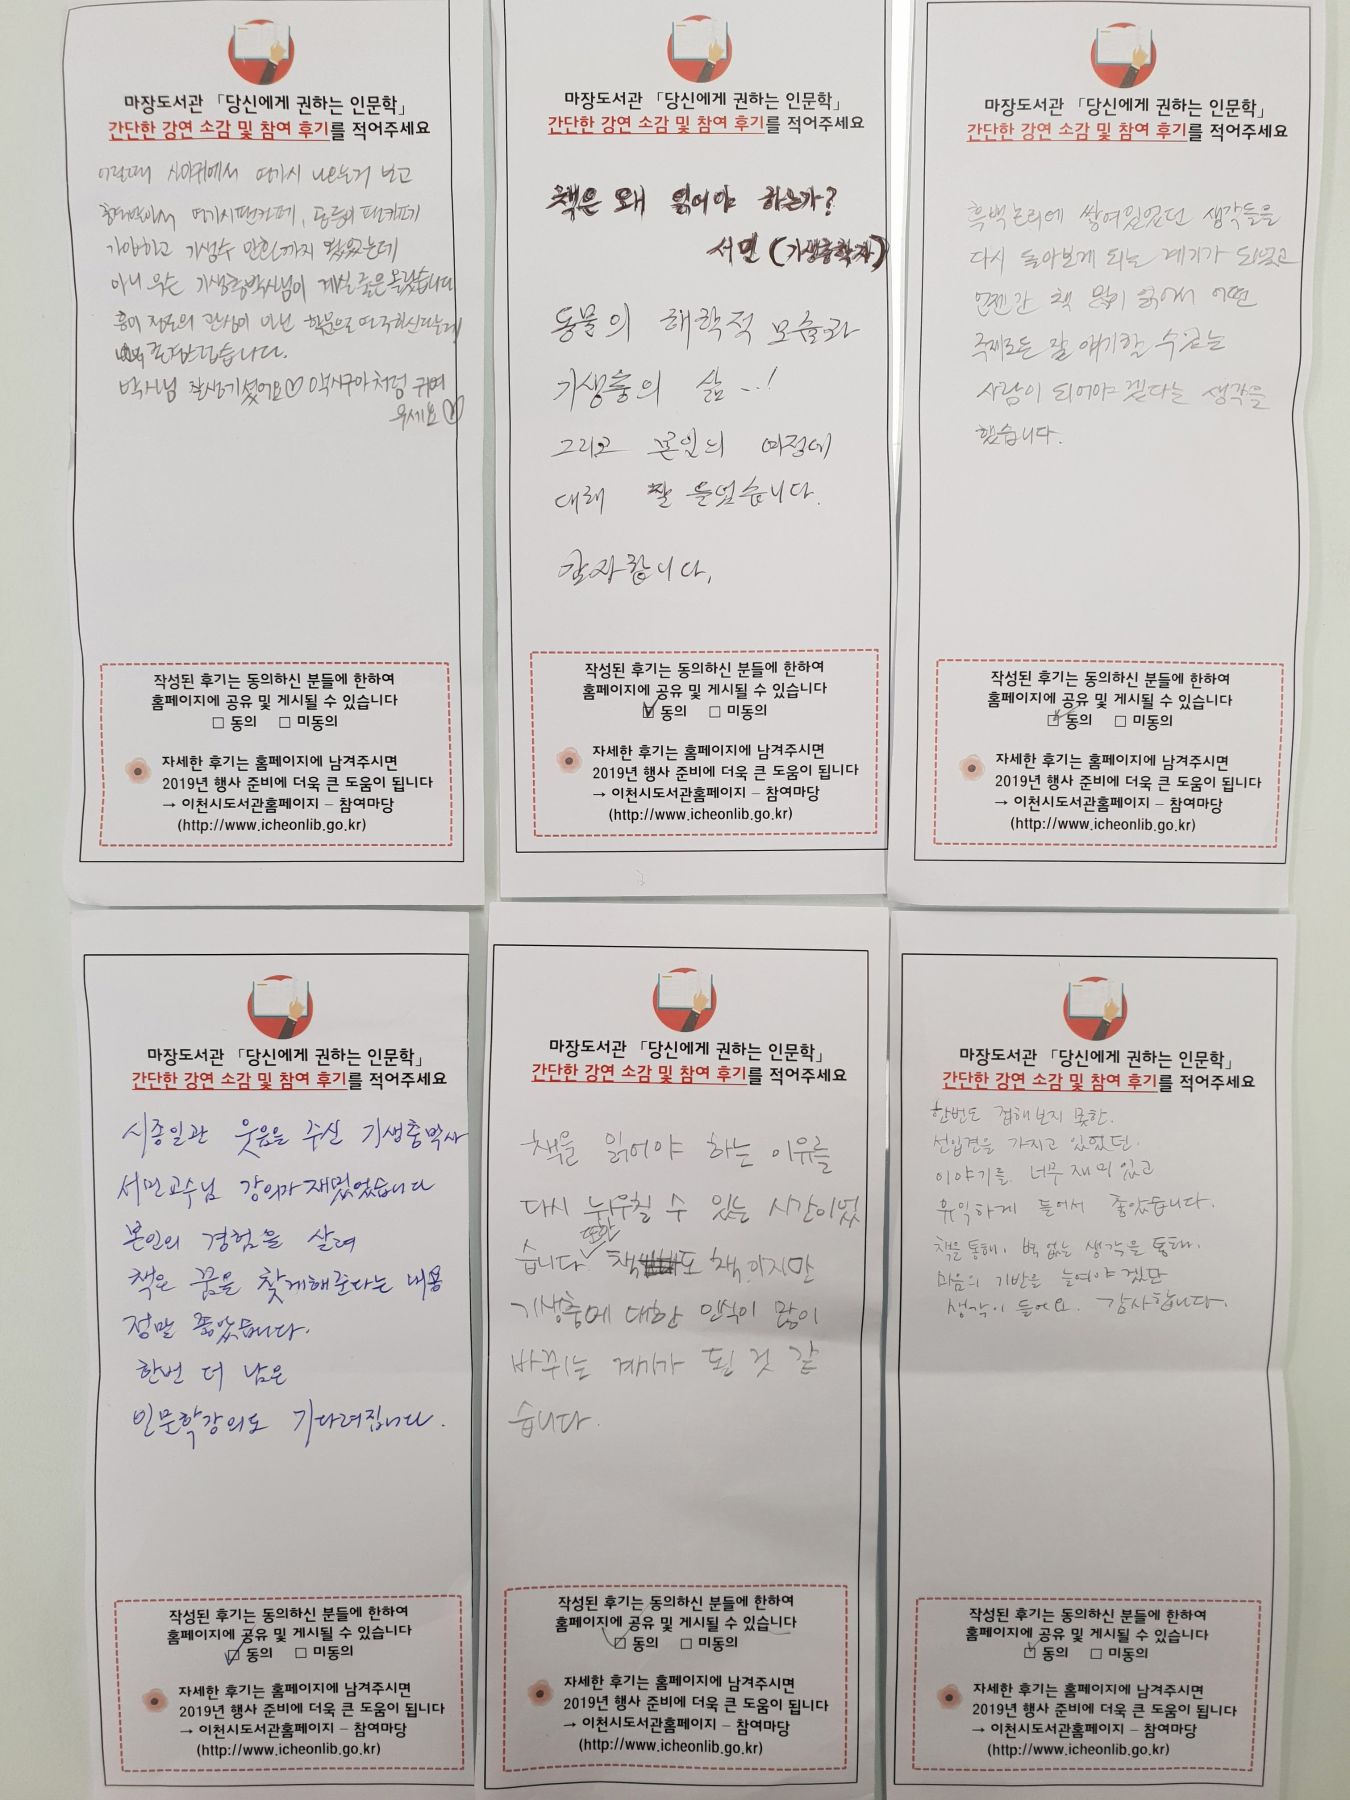 마장도서관 「당신에게 권하는 인문학」
간단한 강연 소감 및 참여 후기를 적어주세요
이럴때 사마귀에서 연가시 나오는거 보고
연가시팬카페, 동충이 팬카페
가입하고 기생수 만화까지 봤었는데
아니 우는 기생충박사님이 계실 줄은 몰랐습니다
흥미 정도의 관심이 아닌 학문으로 연구하신다는게
존경스럽습니다.
박사님 잘생기셨어요♡ 처럼 귀여
우세요♡
작성된 후기는 동의하신 분들에 한하여
홈페이지에 공유 및 게시될 수 있습니다
□ 동의 □ 미동의
자세한 후기는 홈페이지에 남겨주시면
2019년 행사 준비에 더욱 큰 도움이 됩니다
→ 이천시도서관홈페이지 – 참여마당
(http://www.icheonlib.go.kr)
마장도서관 「당신에게 권하는 인문학」
간단한 강연 소감 및 참여 후기를 적어주세요
책은 왜 읽어야 하는가?
서민 (기생충학자)
동물의 해학적 모습과
기생충의 삶...!
그리고 본인의 여정에
대해 잘 들었습니다.
감사합니다.
작성된 후기는 동의하신 분들에 한하여
홈페이지에 공유 및 게시될 수 있습니다
□ 동의 □ 미동의
자세한 후기는 홈페이지에 남겨주시면
2019년 행사 준비에 더욱 큰 도움이 됩니다
→ 이천시도서관홈페이지 – 참여마당
(http://www.icheonlib.go.kr)
마장도서관 「당신에게 권하는 인문학」
간단한 강연 소감 및 참여 후기를 적어주세요
흑백논리에 쌓여있었던 생각들을
다시 돌아보게 되는 계기가 되었고
언젠간 책 많이 읽어서 어떤
주제로든 잘 얘기할 수 있는
사람이 되어야 겠다는 생각을
했습니다.
작성된 후기는 동의하신 분들에 한하여
홈페이지에 공유 및 게시될 수 있습니다
□ 동의 □ 미동의
자세한 후기는 홈페이지에 남겨주시면
2019년 행사 준비에 더욱 큰 도움이 됩니다
→ 이천시도서관홈페이지 – 참여마당
(http://www.icheonlib.go.kr)
마장도서관 「당신에게 권하는 인문학」
간단한 강연 소감 및 참여 후기를 적어주세요
시종일관 웃음을 주신 기생충박사
서민교수님 강의가 재밌었습니다
본인의 경험을 살려
책은 꿈을 찾게해준다는 내용
정말 좋았습니다.
한번 더 남은
인문학강의도 기다려집니다.
작성된 후기는 동의하신 분들에 한하여
홈페이지에 공유 및 게시될 수 있습니다
□ 동의 □ 미동의
자세한 후기는 홈페이지에 남겨주시면
2019년 행사 준비에 더욱 큰 도움이 됩니다
→ 이천시도서관홈페이지 – 참여마당
(http://www.icheonlib.go.kr)
마장도서관 「당신에게 권하는 인문학」
간단한 강연 소감 및 참여 후기를 적어주세요
책을 읽어야 하는 이유를
다시 뉘우칠 수 있는 시간이었
습니다. 또한 책도 책이지만
기생충에 대한 인식이 많이
바뀌는 계기가 된 것 같
습니다.
작성된 후기는 동의하신 분들에 한하여
홈페이지에 공유 및 게시될 수 있습니다
□ 동의 □ 미동의
자세한 후기는 홈페이지에 남겨주시면
2019년 행사 준비에 더욱 큰 도움이 됩니다
→ 이천시도서관홈페이지 – 참여마당
(http://www.icheonlib.go.kr)
마장도서관 「당신에게 권하는 인문학」
간단한 강연 소감 및 참여 후기를 적어주세요
한번도 접해보지 못한.
선입견을 가지고 있었던.
이야기를 너무 재미있고
유익하게 들어서 좋았습니다.
책을 통해. 벽 없는 생각을 통해.
마음의 기반을 늘여야 겠단
생각이 들어요. 감사합니다.
작성된 후기는 동의하신 분들에 한하여
홈페이지에 공유 및 게시될 수 있습니다
□ 동의 □ 미동의
자세한 후기는 홈페이지에 남겨주시면
2019년 행사 준비에 더욱 큰 도움이 됩니다
→ 이천시도서관홈페이지 – 참여마당
(http://www.icheonlib.go.kr)